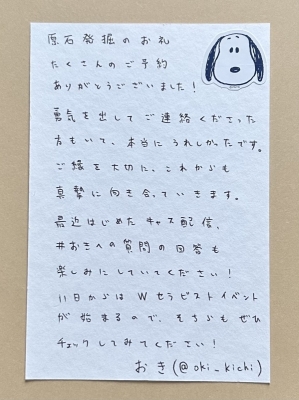 原石発掘のお礼
たくさんのご予約
ありがとうございました！
勇気を出してご連絡くださった
方もいて、本当にうれしかったです。
ご縁を大切に、これからも
真摯に向き合っていきます。
最近はじめたキャス配信、
#おきへの質問の回答も
楽しみにしていてください！
11日からは Wセラピストイベント
が始まるので、そちらもぜひ
チェックしてみてください！
おき(@oki_kichi)